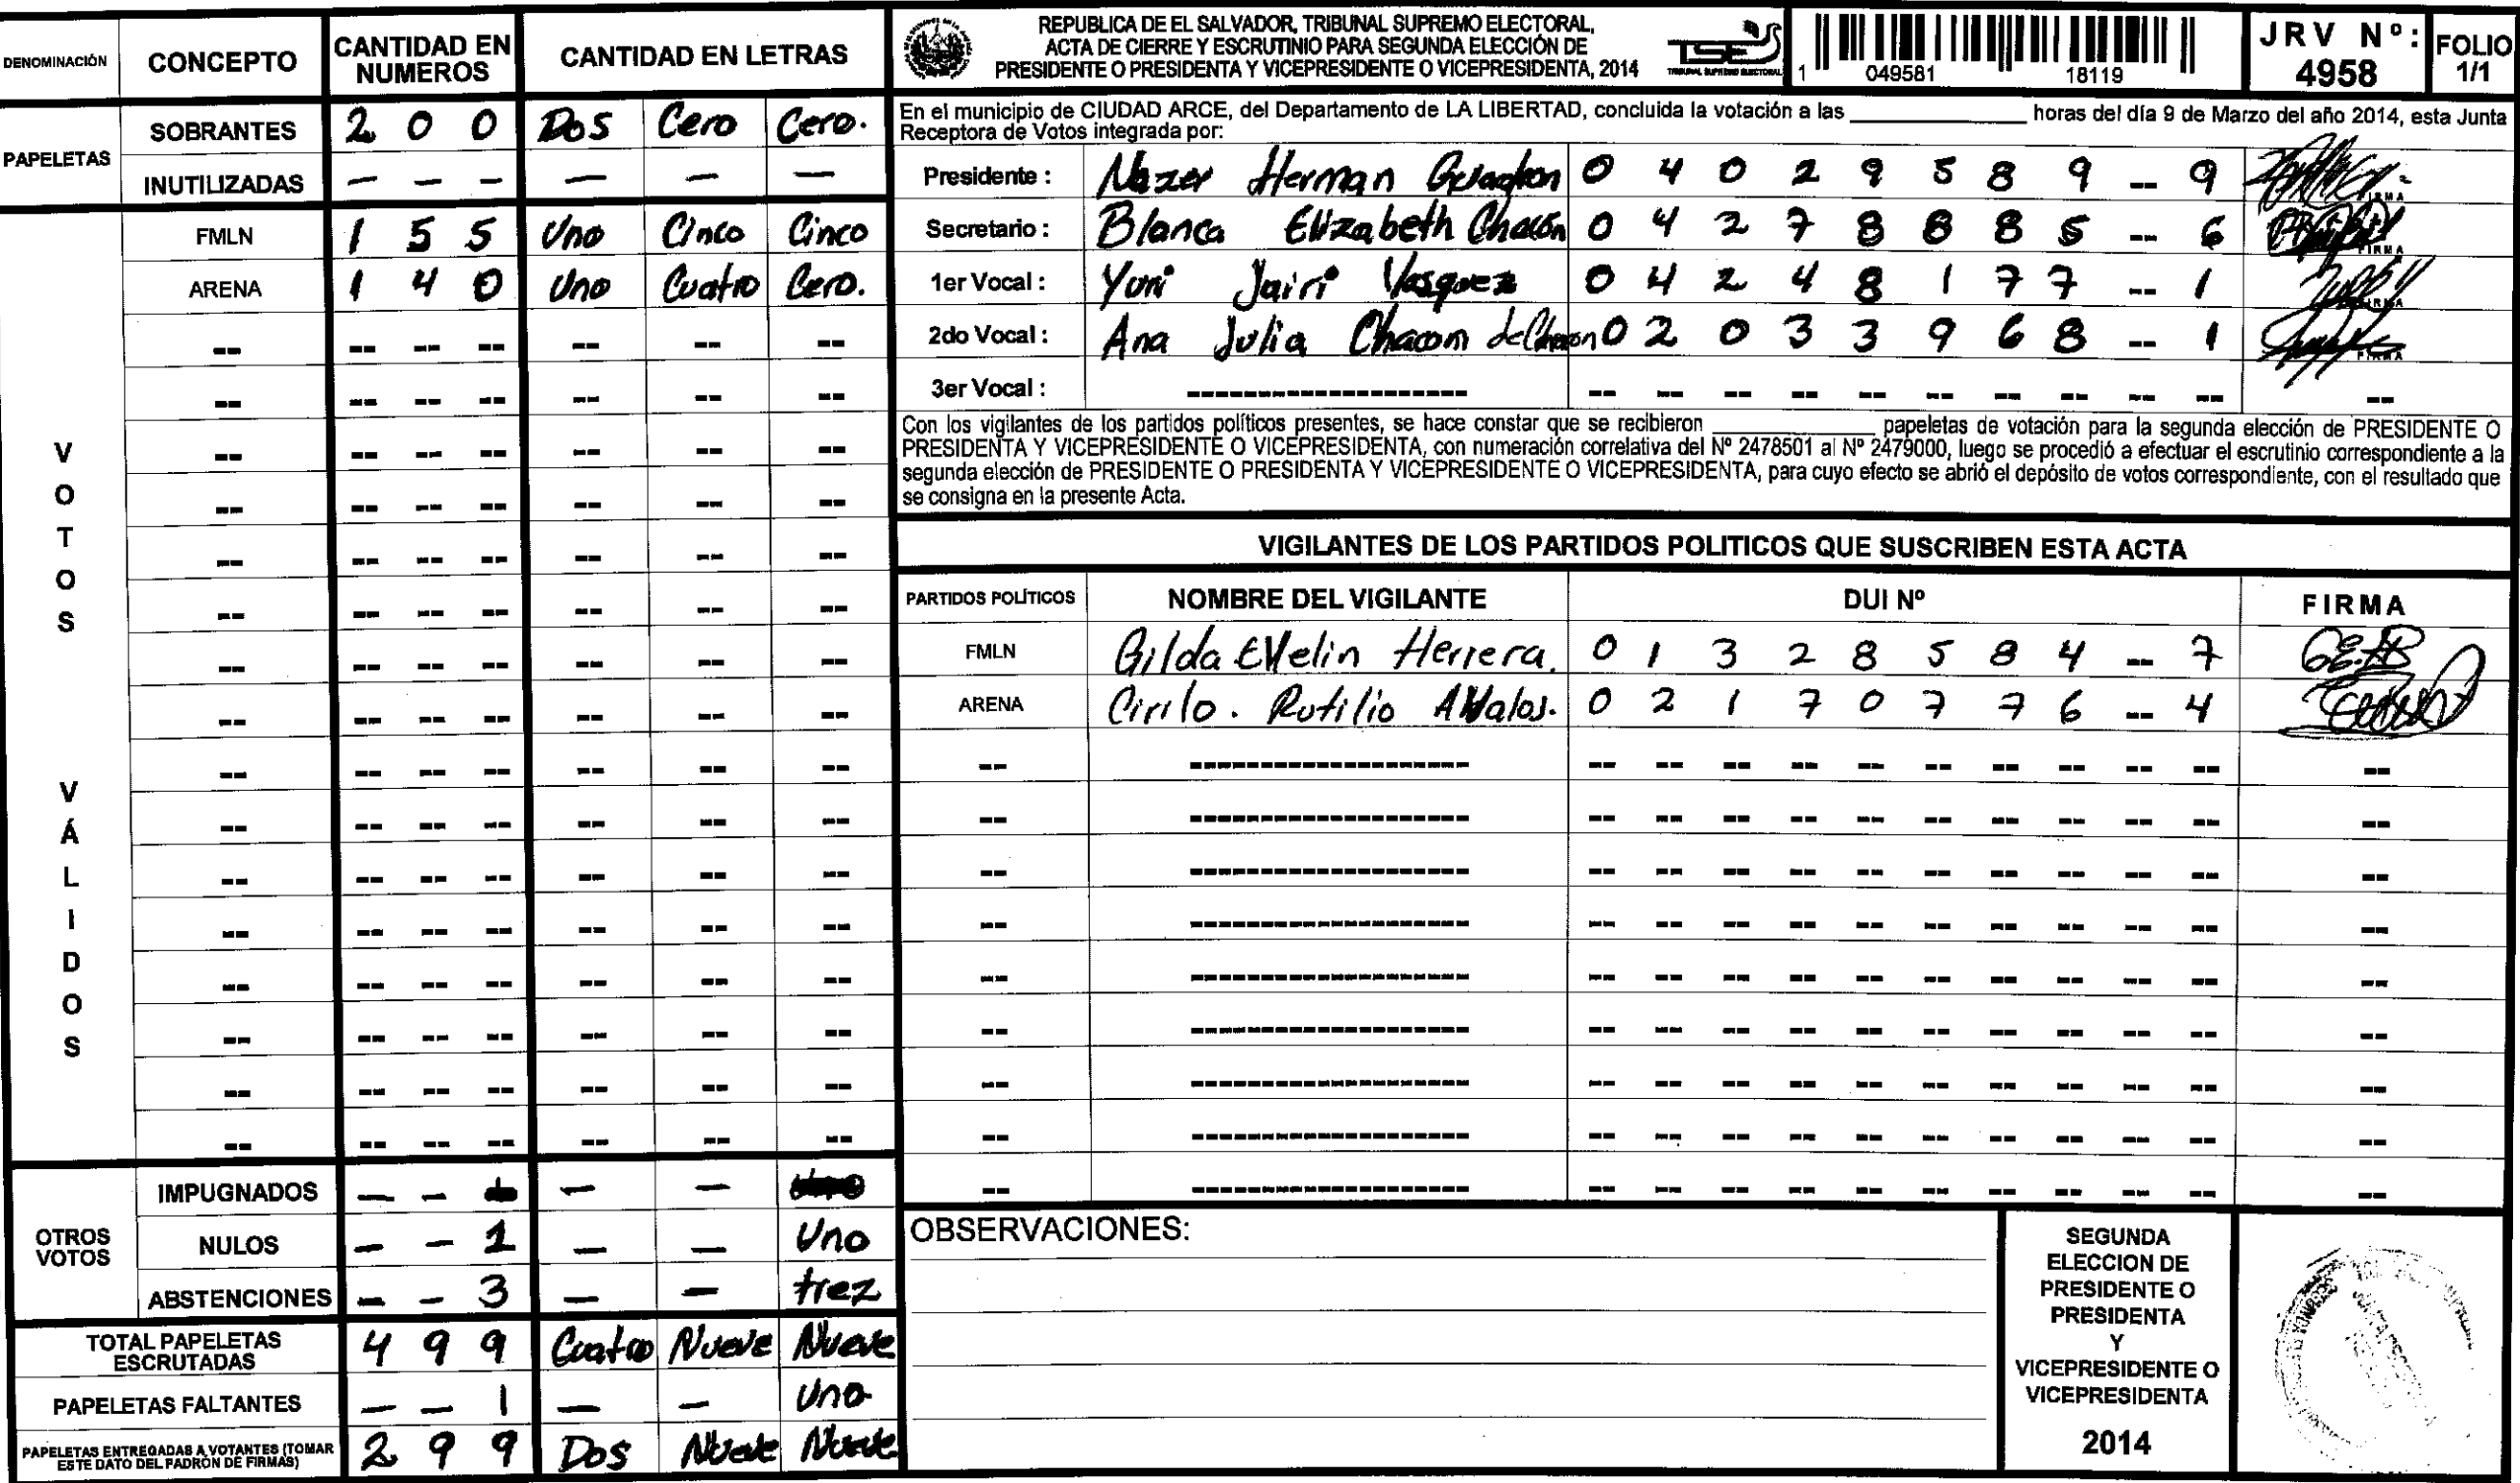 DENOMINACIÓN CONCEPTO CANTIDAD EN NUMEROS CANTIDAD EN LETRAS
PAPELETAS
SOBRANTES 2 0 0 Dos Cero Cero.
INUTILIZADAS — — — — — —
VOTOS VÁLIDOS
FMLN 1 5 5 Uno Cinco Cinco
ARENA 1 4 0 Uno Cuatro Cero.
OTROS VOTOS
IMPUGNADOS — — — —
NULOS — — 1 — — Uno
ABSTENCIONES — — 3 — — trez
TOTAL PAPELETAS ESCRUTADAS 4 9 9 Cuatro Nueve Nueve
PAPELETAS FALTANTES — — 1 — — Uno
PAPELETAS ENTREGADAS A VOTANTES (TOMAR ESTE DATO DEL PADRÓN DE FIRMAS) 2 9 9 Dos Nueve Nueve
REPUBLICA DE EL SALVADOR, TRIBUNAL SUPREMO ELECTORAL,
ACTA DE CIERRE Y ESCRUTINIO PARA SEGUNDA ELECCIÓN DE
PRESIDENTE O PRESIDENTA Y VICEPRESIDENTE O VICEPRESIDENTA, 2014
TSE
TRIBUNAL SUPREMO ELECTORAL
1 049581 18119
JRV Nº: 4958
FOLIO 1/1
En el municipio de CIUDAD ARCE, del Departamento de LA LIBERTAD, concluida la votación a las ____ horas del día 9 de Marzo del año 2014, esta Junta
Receptora de Votos integrada por:
Presidente : Nazer Herman 0 4 0 2 9 5 8 9 -- 9
Secretario : Blanca Elizabeth Chacón 0 4 2 7 8 8 8 5 -- 6
1er Vocal : Yuri Jairi Vasquez 0 4 2 4 8 1 7 7 -- 1
2do Vocal : Ana Julia Chacon de Chacon 0 2 0 3 3 9 6 8 -- 1
3er Vocal :
FIRMA
Con los vigilantes de los partidos políticos presentes, se hace constar que se recibieron ____ papeletas de votación para la segunda elección de PRESIDENTE O
PRESIDENTA Y VICEPRESIDENTE O VICEPRESIDENTA, con numeración correlativa del Nº 2478501 al Nº 2479000, luego se procedió a efectuar el escrutinio correspondiente a la
segunda elección de PRESIDENTE O PRESIDENTA Y VICEPRESIDENTE O VICEPRESIDENTA, para cuyo efecto se abrió el depósito de votos correspondiente, con el resultado que
se consigna en la presente Acta.
VIGILANTES DE LOS PARTIDOS POLITICOS QUE SUSCRIBEN ESTA ACTA
PARTIDOS POLÍTICOS NOMBRE DEL VIGILANTE DUI Nº FIRMA
FMLN Gilda Evelin Herrera. 0 1 3 2 8 5 8 4 -- 7
ARENA Cirilo. Rutilio Avalos. 0 2 1 7 0 7 7 6 -- 4
OBSERVACIONES:
SEGUNDA
ELECCION DE
PRESIDENTE O
PRESIDENTA
Y
VICEPRESIDENTE O
VICEPRESIDENTA
2014